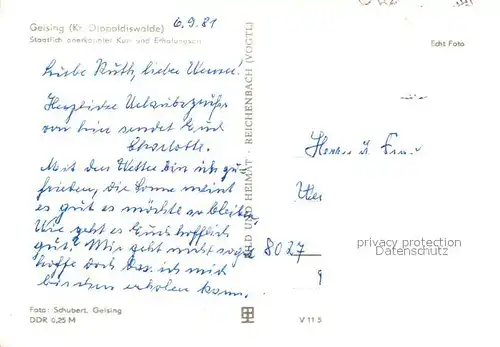 Geising (Kr. Dippoldiswalde)
Staatlich anerkannter Kur- und Erholungsort
6.9.81
Echt Foto
Liebe Ruth, lieber Werner!
Herzliche Urlaubsgrüße
von hier sendet Euch
Charlotte.
Mit dem Wetter bin ich zu-
frieden, die Sonne meint
es gut es möchte so bleiben,
Wie geht es Euch hoffentlich
gut? Mir geht nicht so gut
hoffe doch das ich mich
bisschen erholen kann.
BILD UND HEIMAT · REICHENBACH (VOGTL)
Herrn u. Frau
8027
privacy protection
Datenschutz
Foto: Schubert, Geising
DDR 0,25 M
V 11 5